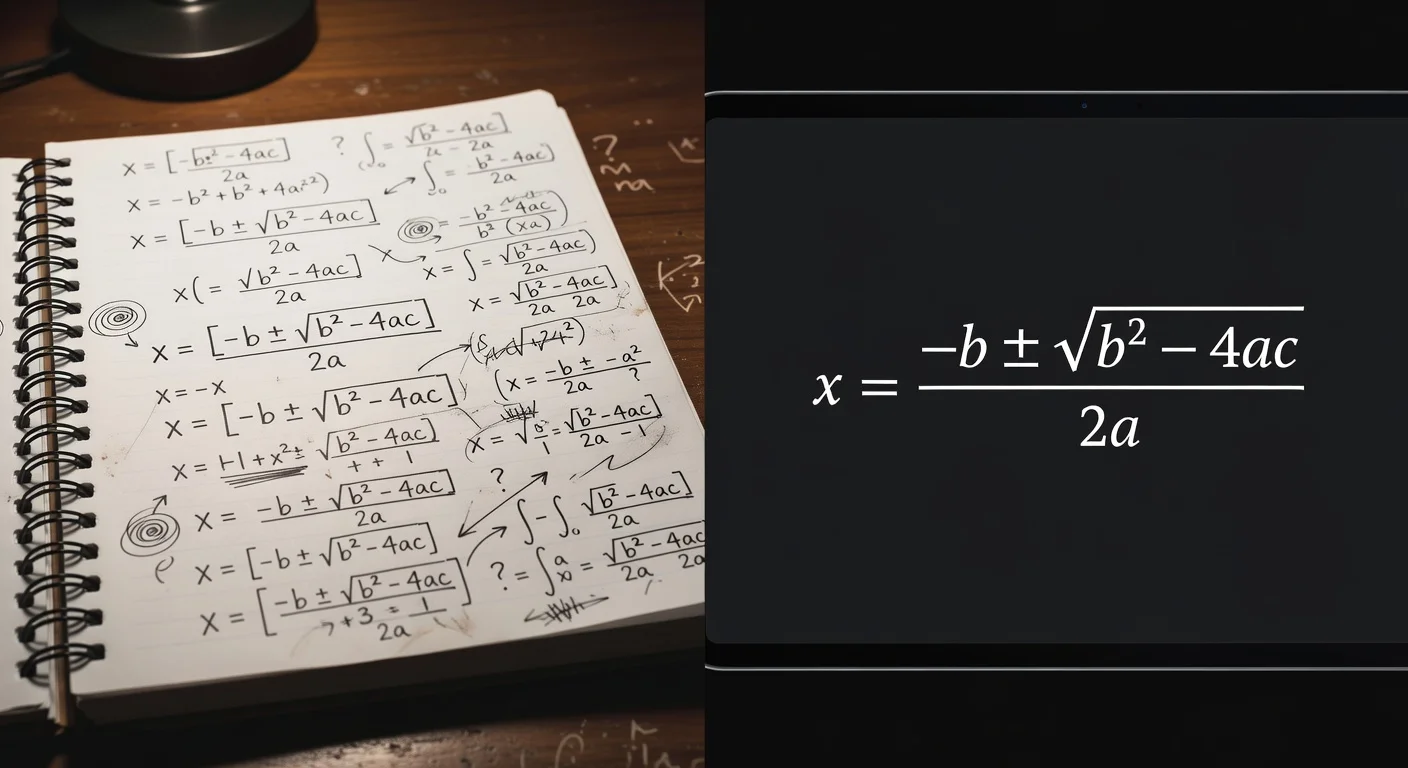 x = [-b² - 4ac] / 2a
x = -b² + b² + 4a²²)
x = [-b ± √b² - 4ac] / 2a
x(= √b² - 4ac] / 2a
x = [-b ± √b² - 4ac] / 2a
x = -x
x = [-b ± √b² - 4ac]
x = -1 + x² ± √b² - 4ac] / + + 1
x = -b ± √b² - 4ac] / 2a
x = [-b ± √b² - 4ac]
x = [-b ± √b² - 4ac] / +3 = 1 / 2a
? ∫ = √b² - 4ac] / 2a - 2a
∫ = b² - 4ac) / 2a
= -b² - 4ac / b² (xa))
x = ∫ = √b² - 4ac) / 2a
x = √b² - 4ac] / 2a 2a
(x = -b ± - a² / 2a ?
(x = √ 0/1 = √b² - 4ac] / 2a - 1
?
∫ - ∫₀ √b² - 4ac] / 2a
? = ∫ a x = √b² - 4ac / 2a 2a
?
x = -b ± √b² - 4ac / 2a